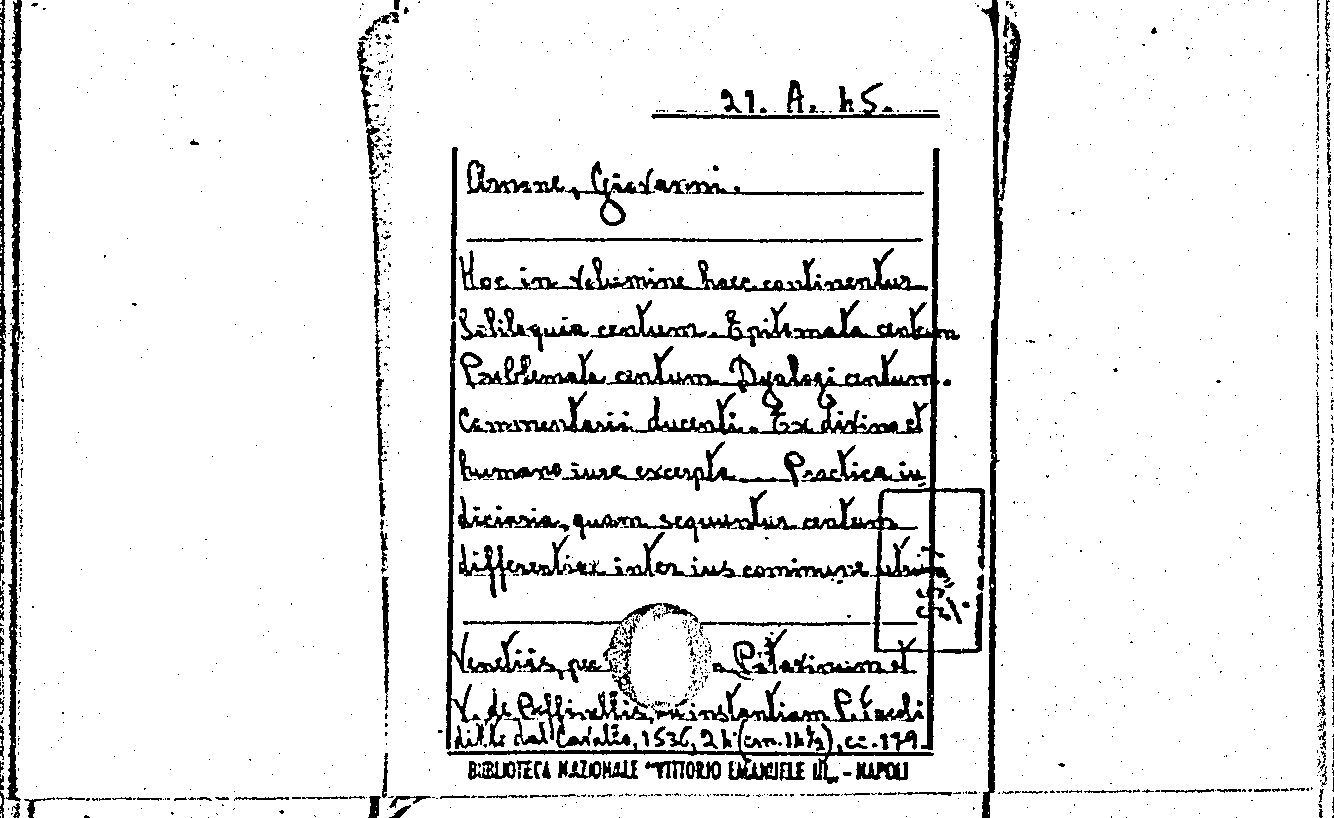 21. A. 45.
Anone, Giovanni.
Hoc in volumine haec continentur
Soliloquia centum. Epitomata centum
Problemata centum Dyalogi centum.
Commentarii ducenti. Ex divino et
humano iure excerpta Practica iu
diciaria, quam sequuntur centum
differentiae inter ius commune
Venetiis, per Patavinum et
V. de Roffinellis, instantiam
dal Cavalo, 1536, 24
BIBLIOTECA NAZIONALE "VITTORIO EMANUELE III" - NAPOLI